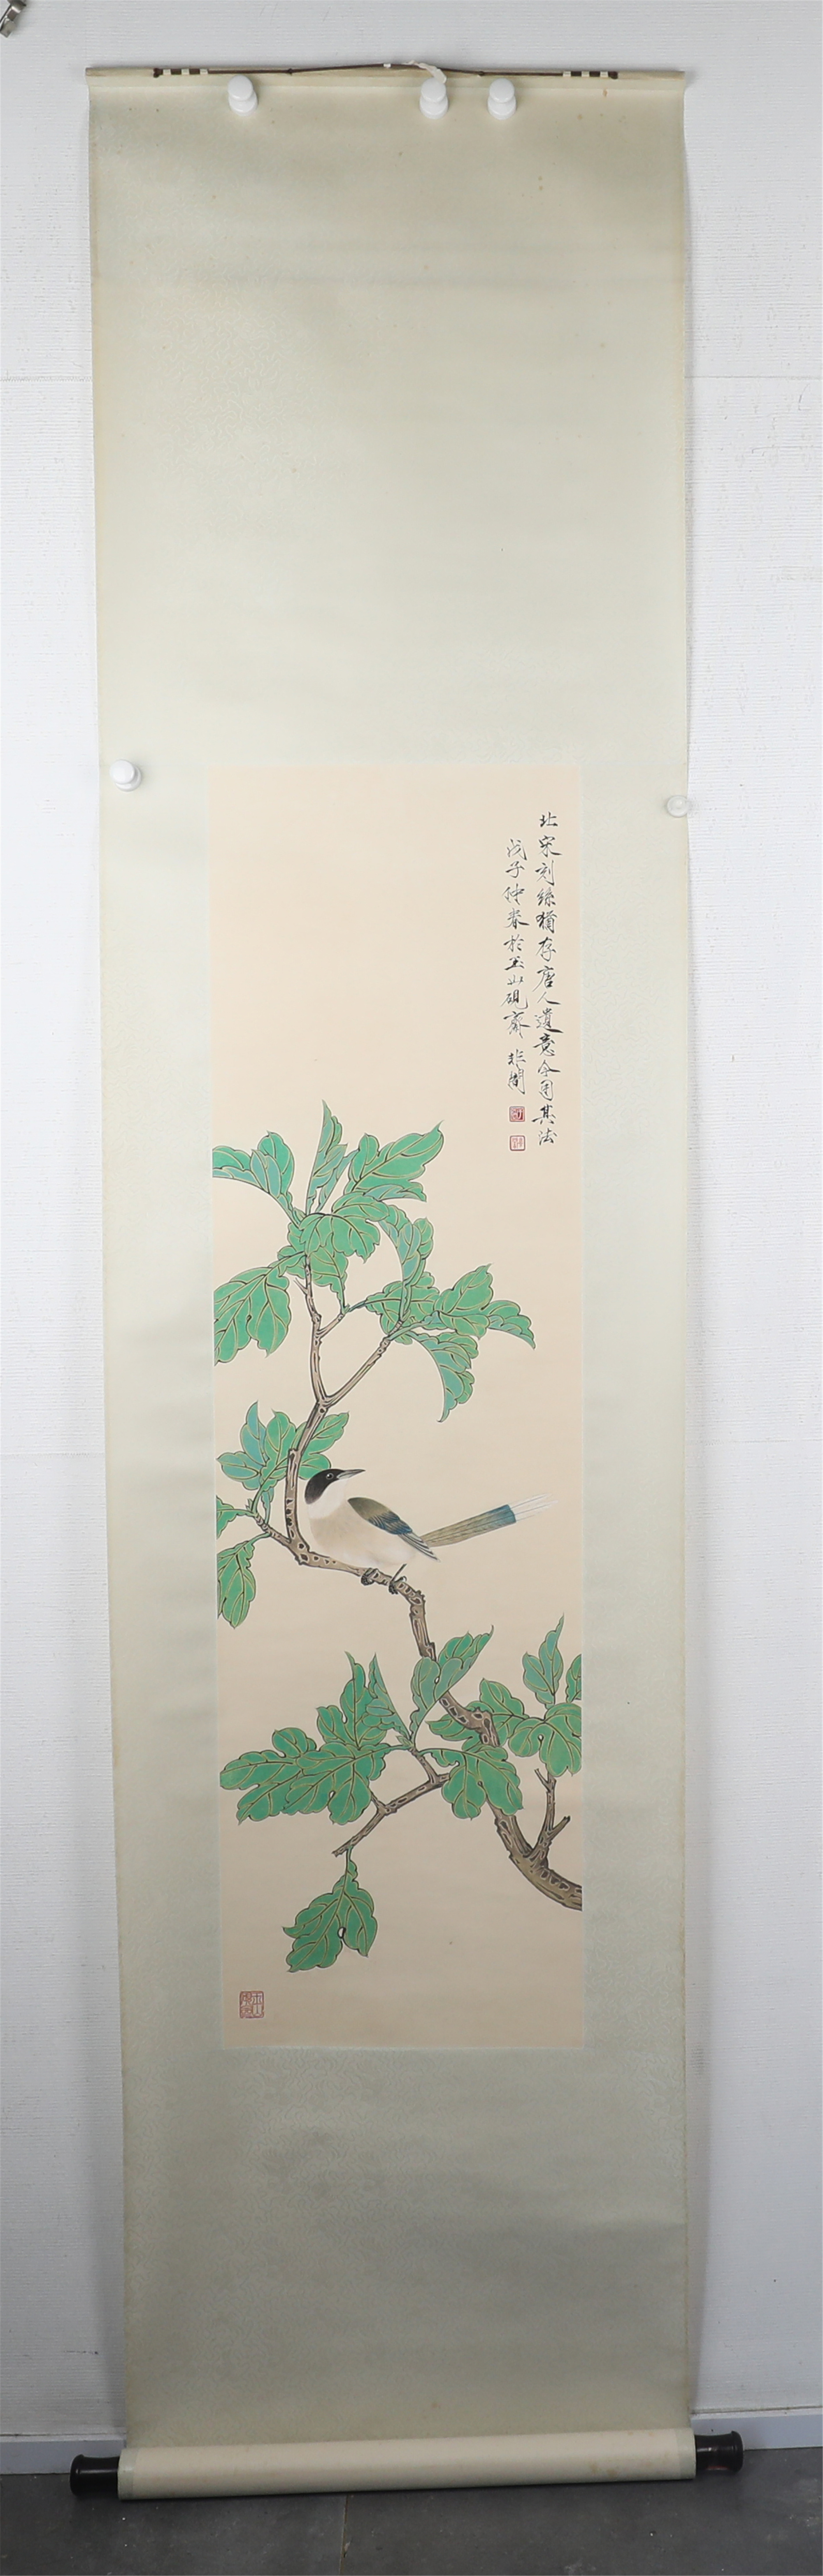 北宋刻絲猶存唐人遺意今用其法
戊子仲春於玉山硯齋 非闇